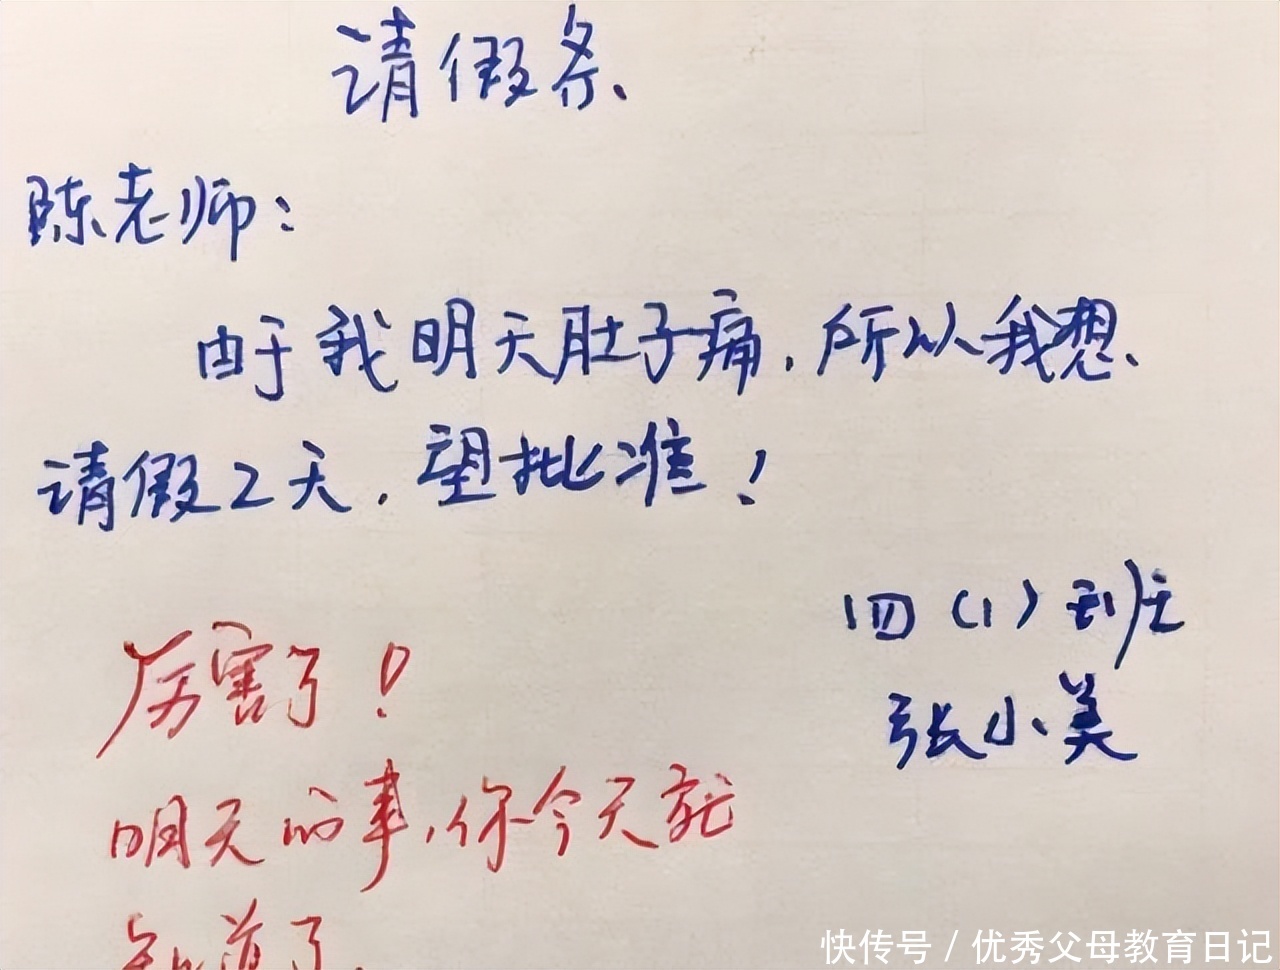 请假条
陈老师：
由于我明天肚子痛，所以我想
请假2天，望批准！
四（1）班
张小美
厉害了！
明天的事，你今天就
知道了.
快传号 / 优秀父母教育日记